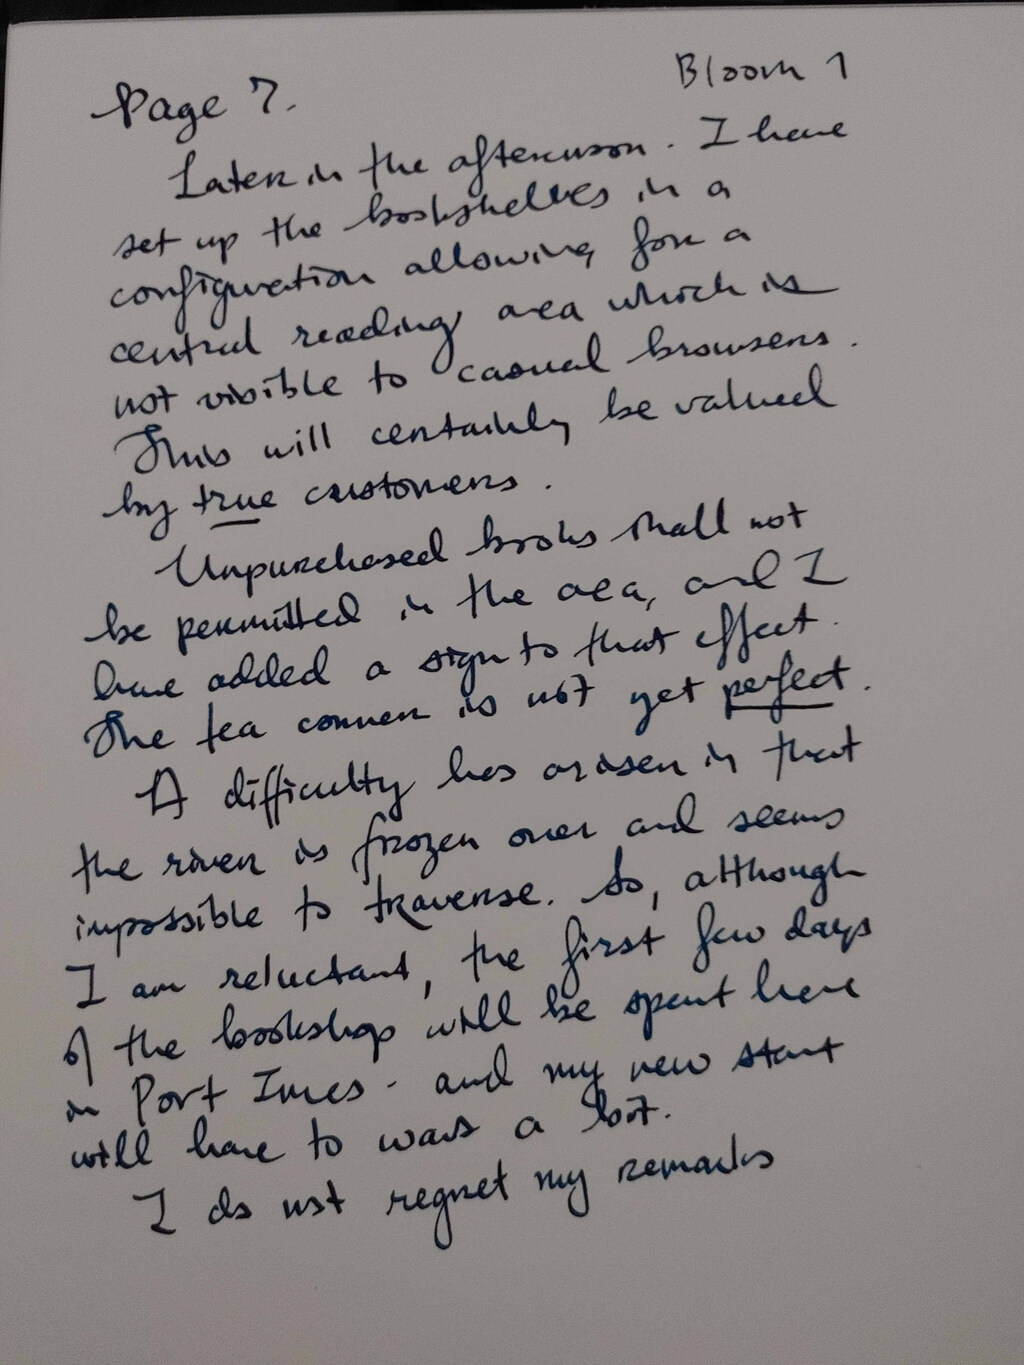 Page 7.
Bloom 1
Later in the afternoon. I have
set up the bookshelves in a
configuration allowing for a
central reading area which is
not visible to casual browsers.
This will certainly be valued
by true customers.
Unpurchased books shall not
be permitted in the area, and I
have added a sign to that effect.
The tea corner is not yet perfect.
A difficulty has arisen in that
the river is frozen over and seems
impossible to traverse. So, although
I am reluctant, the first few days
of the bookshop will be spent here
in Port Imes - and my new start
will have to wait a bit.
I do not regret my remarks